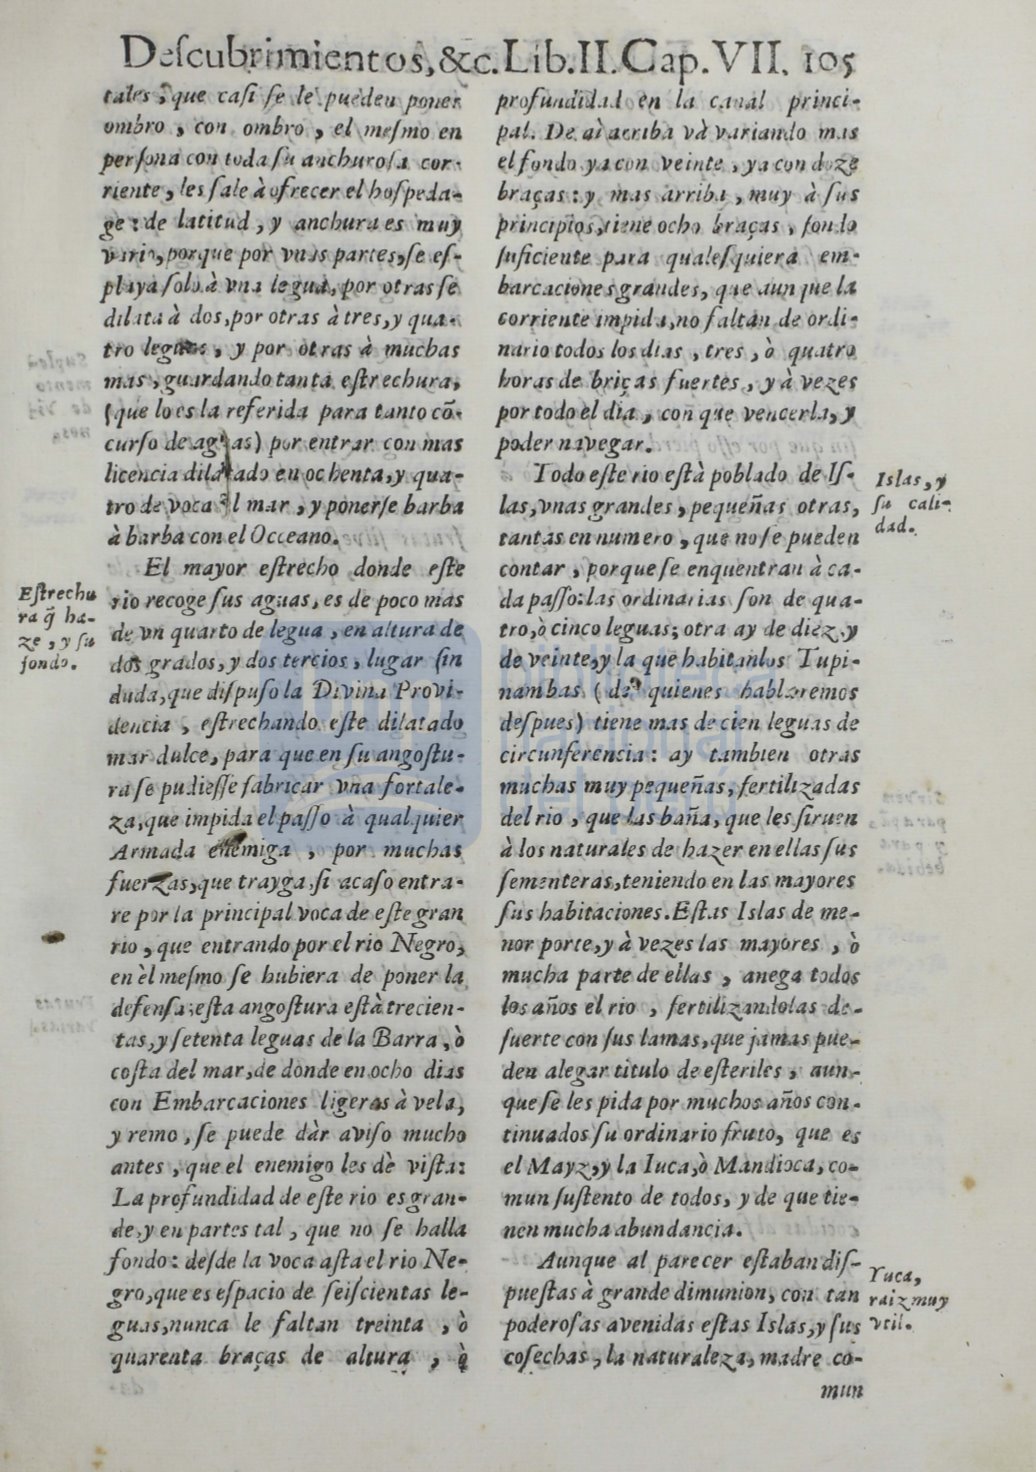 Descubrimientos, &c. Lib. II. Cap. VII. 105
tales, que casi se le pueden poner
ombro, con ombro, el mesmo en
persona con toda su anchurosa cor-
riente, les sale à ofrecer el hospeda-
ge: de latitud, y anchura es muy
vario, porque por vnas partes, se es-
playa solo à vna legua, por otras se
dilata à dos, por otras à tres, y qua-
tro leguas, y por otras à muchas
mas, guardando tanta estrechura,
(que lo es la referida para tanto cõ-
curso de aguas) por entrar con mas
licencia dilatado en ochenta, y qua-
tro de voca al mar, y ponerse barba
à barba con el Occeano.
El mayor estrecho donde este
rio recoge sus aguas, es de poco mas
de vn quarto de legua, en altura de
dos grados, y dos tercios, lugar sin
duda, que dispuso la Divina Provi-
dencia, estrechando este dilatado
mar dulce, para que en su angostu-
ra se pudiesse fabricar vna fortale-
za, que impida el passo à qualquier
Armada enemiga, por muchas
fuerzas, que trayga, si acaso entra-
re por la principal voca de este gran
rio, que entrando por el rio Negro,
en èl mesmo se hubiera de poner la
defensa; esta angostura està trecien-
tas, y setenta leguas de la Barra, ò
costa del mar, de donde en ocho dias
con Embarcaciones ligeras à vela,
y remo, se puede dàr aviso mucho
antes, que el enemigo les dè vista:
La profundidad de este rio es gran-
de, y en partes tal, que no se halla
fondo: desde la voca asta el rio Ne-
gro, que es espacio de seiscientas le-
guas, nunca le faltan treinta, ò
quarenta braças de altura, ò
Estrechu
ra q̃ ha-
ze, y su
fondo.
profundidad en la canal princi-
pal. De aì arriba và variando mas
el fondo ya con veinte, ya con doze
braças: y mas arriba, muy à sus
principios, tiene ocho braças, fondo
suficiente para qualesquiera em-
barcaciones grandes, que aunque la
corriente impida, no faltan de ordi-
nario todos los dias, tres, ò quatro
horas de briças fuertes, y à vezes
por todo el dia, con que vencerla, y
poder navegar.
Todo este rio està poblado de Is-
las, vnas grandes, pequeñas otras,
tantas en numero, que no se pueden
contar, porque se enquentran à ca-
da passo: las ordinarias son de qua-
tro, ò cinco leguas; otra ay de diez, y
de veinte, y la que habitan los Tupi-
nambas (de quienes hablaremos
despues) tiene mas de cien leguas de
circunferencia: ay tambien otras
muchas muy pequeñas, fertilizadas
del rio, que las baña, que les siruen
à los naturales de hazer en ellas sus
sementeras, teniendo en las mayores
sus habitaciones. Estas Islas de me-
nor porte, y à vezes las mayores, ò
mucha parte de ellas, anega todos
los años el rio, fertilizandolas de-
suerte con sus lamas, que jamas pue-
den alegar titulo de esteriles, aun-
que se les pida por muchos años con-
tinuados su ordinario fruto, que es
el Mayz, y la Iuca, ò Mandioca, co-
mun sustento de todos, y de que tie-
nen mucha abundancia.
Aunque al parecer estaban dis-
puestas à grande dimunion, con tan
poderosas avenidas estas Islas, y sus
cosechas, la naturaleza, madre co-
mun
Islas, y
su cali-
dad.
Yuca,
raiz muy
vtil.
biblioteca
nacional
del perú